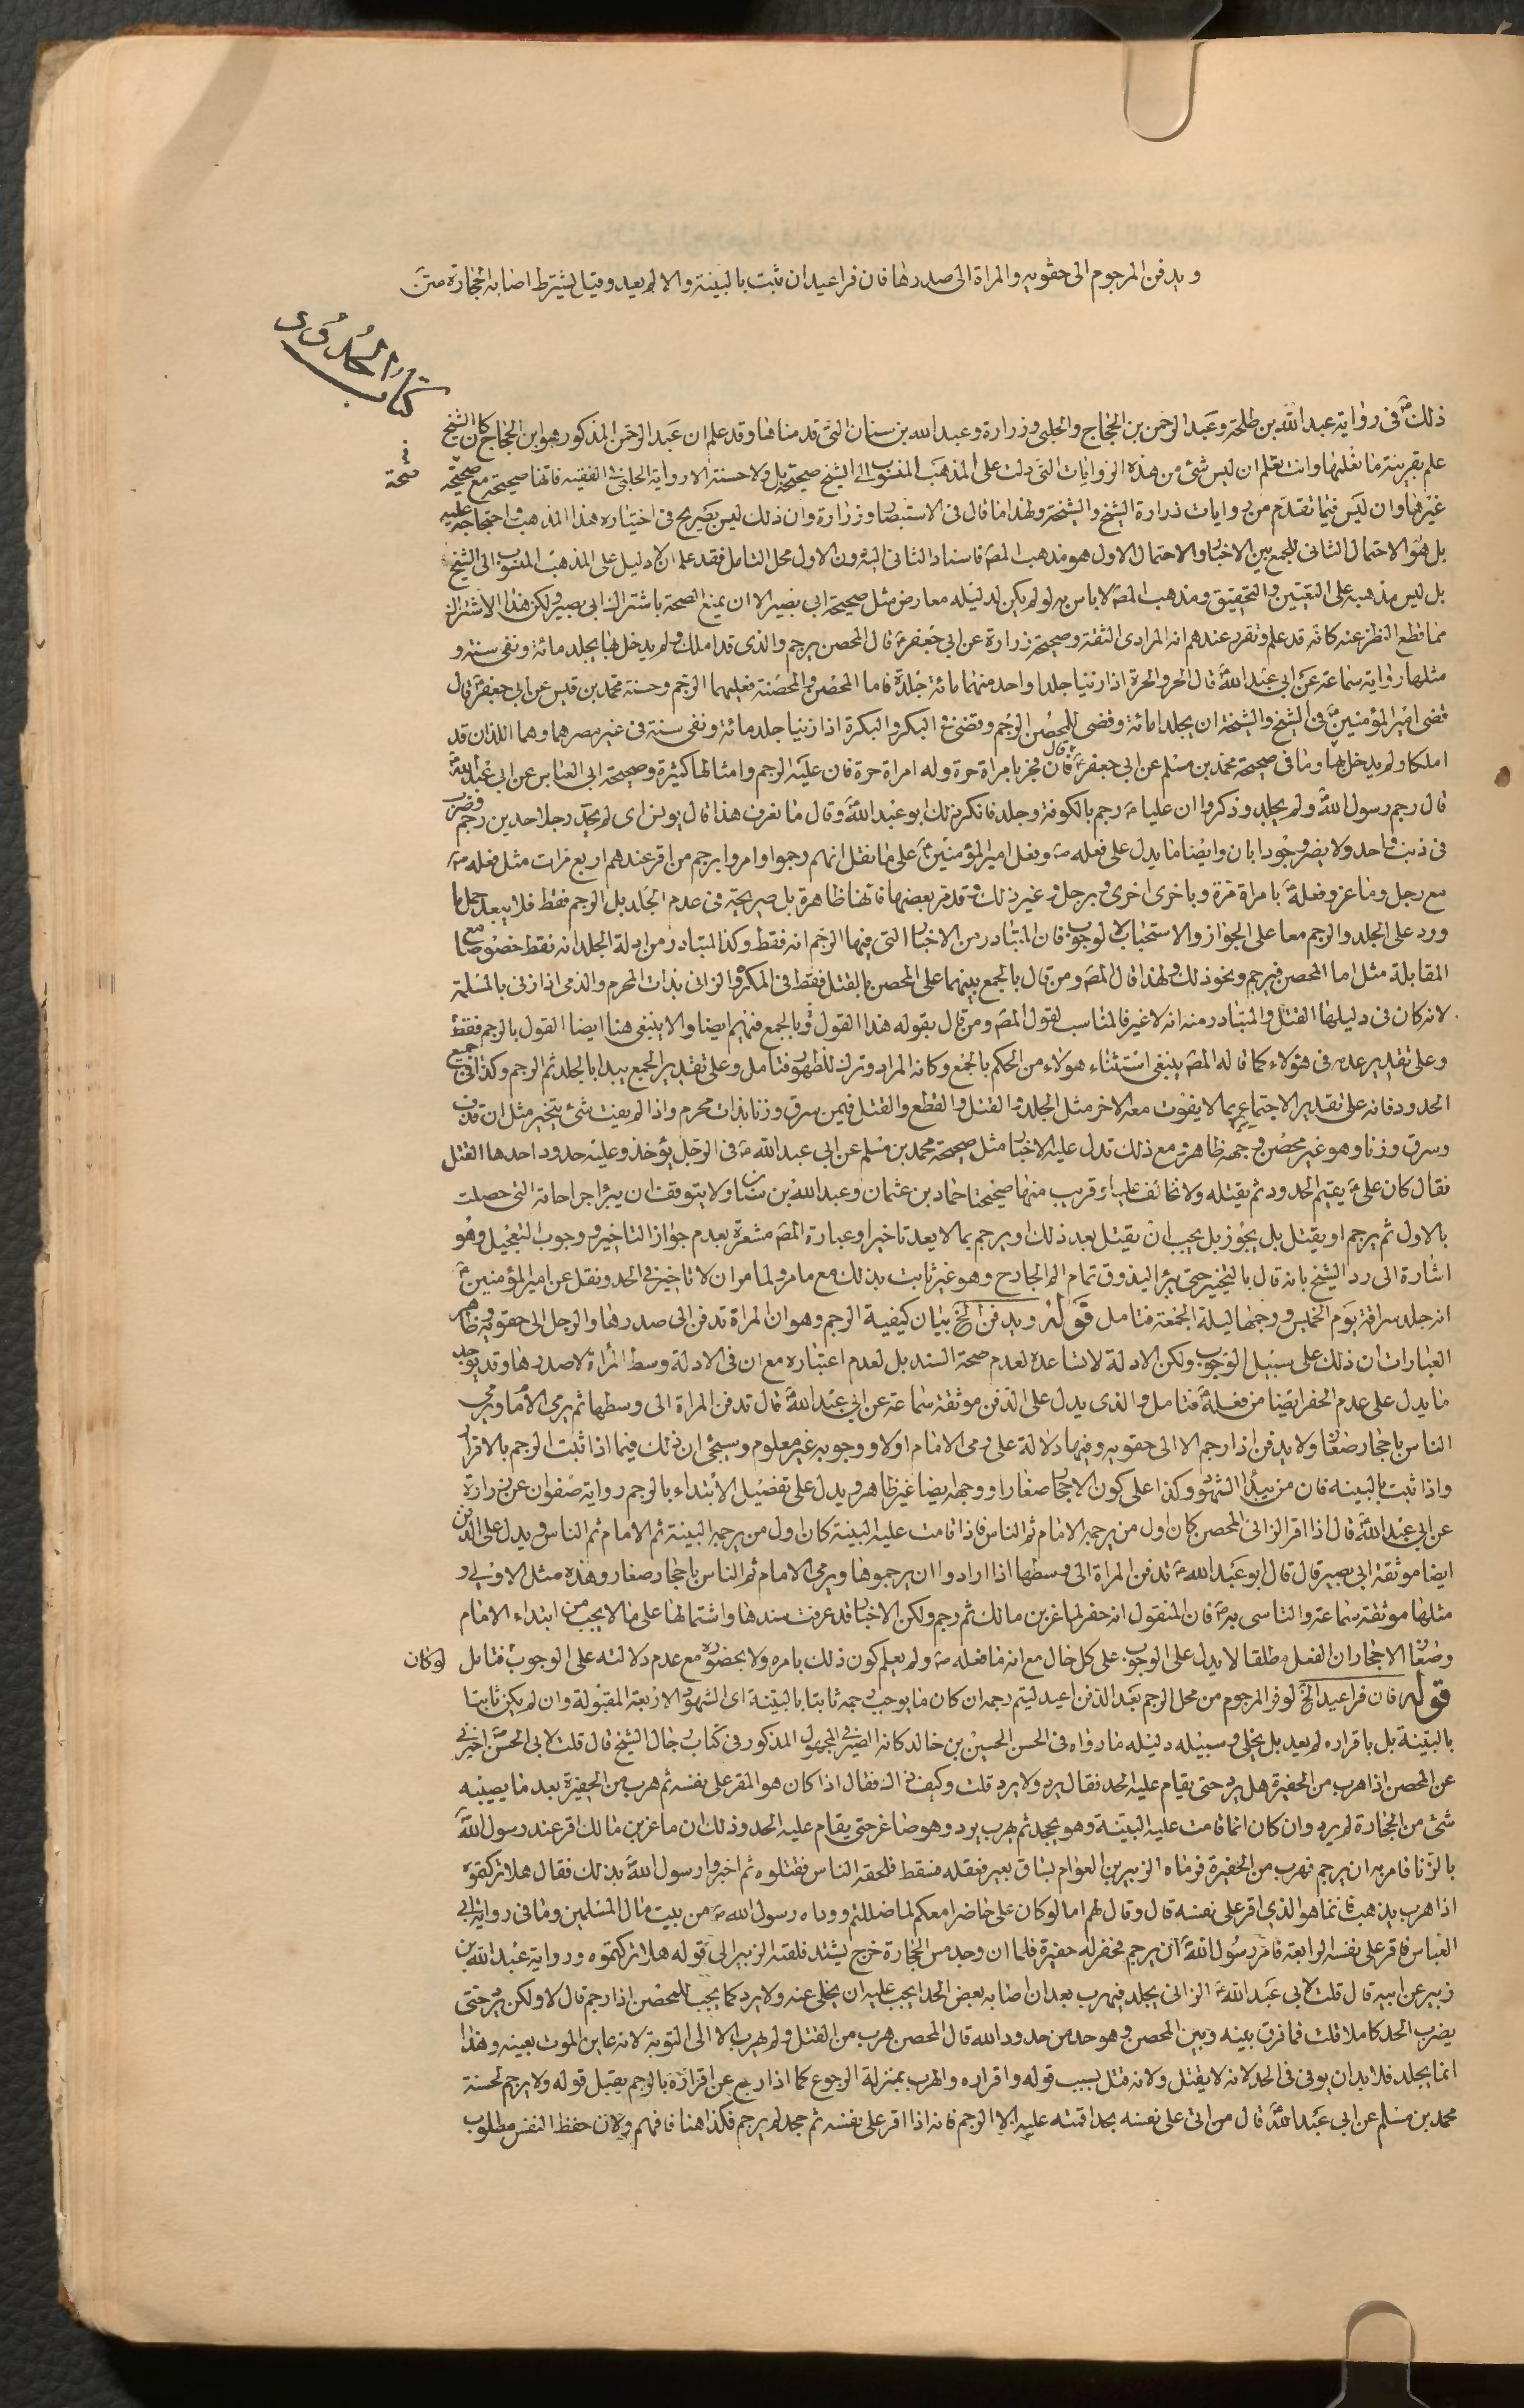 ويدفن المرجوم الى حقويه والمراة الى صدرها فان فر اعيد ان ثبت بالبينة والا لم يعد وقيل يشترط اصابة الحجارة متن
كتاب الحدود
ذلك في رواية عبد الله بن طلحة وعبد الرحمن بن الحجاج والحلبي وزرارة وعبد الله بن سنان التي قدمناها وقد علم ان عبد الرحمن المذكور هو ابن الحجاج كان الشيخ
علم بقرينة ما نعلمها وانت تعلم ان ليس شئ من هذه الروايات التي دلت على المذهب المنسوب الى الشيخ صحيحة بل ولا حسنة الا رواية الحلبي في الفقيه فانها صحيحة مع صحة
غيرها وان ليس فيما تقدم من روايات زرارة الشيخ والشيخة ولهذا ما قال في الاستبصار وزرارة وان ذلك ليس بصريح في اختياره هذا المذهب واحتجاجه عليه
بل هو الاحتمال الثاني للجمع بين الاخبار والاحتمال الاول هو مذهب المصـ فاسناد الثاني اليه دون الاول محل التامل فقد علم ان لا دليل على المذهب المنسوب الى الشيخ
بل ليس مذهبه على التعيين والتحقيق ومذهب المصـ لا باس به لو لم يكن لدليله معارض مثل صحيحة ابي بصير الا ان يمنع الصحة باشتراك ابي بصير ولكن هذا الاشتراك
مما قطع النظر عنه كانه قد علم وتقرر عندهم انه المرادي الثقة وصحيحة زرارة عن ابي جعفر قال المحصن يرجم والذي قد املك ولم يدخل بها يجلد مائة ونفى سنة و
مثلها رواية سماعة عن ابي عبد الله قال الحر والحرة اذا زنيا جلد واحد منهما مائة جلدة فاما المحصن والمحصنة فعليهما الرجم وحسنة محمد بن قيس عن ابي جعفر قال
قضى امير المؤمنين في الشيخ والشيخة ان يجلدا مائة وقضى للمحصن الرجم وقضى في البكر والبكرة اذا زنيا جلد مائة ونفى سنة في غير مصرهما وهما اللذان قد
املكا ولم يدخل بها وما في صحيحة محمد بن مسلم عن ابي جعفر قال فان فجر بامراة حرة وله امراة حرة فان عليه الرجم وامثالها كثيرة وصحيحة ابي العباس عن ابي عبد الله
قال رجم رسول الله ولم يجلد وذكروا ان عليا رجم بالكوفة وجلد فانكر ذلك ابو عبد الله وقال ما نعرف هذا قال يونس اى لم يحد رجلا حدين رجم وضرب
في ذنب واحد ولا يضر وجود ابان وايضا ما يدل على فعله وفعل امير المؤمنين على ما نقل انهم رجموا وامروا برجم من اقر عندهم اربع مرات مثل فعله
مع رجل وماعز وفعله بامراة مرة وباخرى اخرى وبرجل وغير ذلك وقد مر بعضها فانها ظاهرة بل صريحة في عدم الجلد بل الرجم فقط فلا يبعد حمل ما
ورد على الجلد والرجم معا على الجواز والاستحباب لا الوجوب فان المتبادر من الاخبار التي فيها الرجم انه فقط وكذا المتبادر من ادلة الجلد انه فقط خصوصا مع
المقابلة مثل اما المحصن فيرجم ونحو ذلك ولهذا قال المصـ ومن قال بالجمع بينهما على المحصن بالقتل فقط في المكره والزاني بذات المحرم والذمي اذا زنى بالمسلمة
لانه كان في دليلها القتل والمتبادر منه انه لا غير فالمناسب لقول المصـ ومن قال بقوله هذا القول وبالجمع فيهم ايضا والا ينبغي هنا ايضا القول بالرجم فقط
وعلى تقدير عدمه في هؤلاء كما قاله المصـ ينبغي استثناء هولاء من الحكم بالجمع وكانه المراد وترك للظهور فتامل وعلى تقدير الجمع يبدا بالجلد ثم الرجم وكذا في جميع
الحدود فانه على تقدير الاجتماع بما لا يفوت معه الاخر مثل الجلد والقتل والقطع والقتل فيمن سرق وزنا بذات محرم واذا لم يفت شئ يتخير مثل ان قذف
وسرق وزنا وهو غير محصن وجهه ظاهر ومع ذلك تدل عليه الاخبار مثل صحيحة محمد بن مسلم عن ابي عبد الله في الرجل يؤخذ وعليه حدود احدها القتل
فقال كان علي يقيم الحدود ثم يقتله ولا تخالف عليا وقريب منها صحيحتا حماد بن عثمان وعبد الله بن سنان ولا يتوقف ان يبرأ جراحاته التي حصلت
بالاول ثم يرجم او يقتل بل يجوز بل يجب ان يقتل بعد ذلك او يرجم بما لا يعد تاخيرا وعبارة المصـ مشعرة بعدم جواز التاخير ووجوب التعجيل وهو
اشارة الى رد الشيخ بانه قال بالتخير حتى يبرأ ليذوق تمام الم الجارح وهو غير ثابت بذلك مع ما مر ولما مر ان لا تاخير في الحد ونقل عن امير المؤمنين
انه جلد سراقة يوم الخميس ورجمها ليلة الجمعة فتامل قوله ويدفن الخ بيان كيفية الرجم وهو ان المراة تدفن الى صدرها والرجل الى حقويه وظاهر
العبارات ان ذلك على سبيل الوجوب ولكن الادلة لا تساعده لعدم صحة السند بل لعدم اعتباره مع ان في الادلة وسط المرأة لا صدرها وقد يوجد
ما يدل على عدم الحفر ايضا من فعله فتامل والذي يدل على الدفن موثقة سماعة عن ابي عبد الله قال تدفن المراة الى وسطها ثم يرمي الامام ويرمي
الناس باحجار صغار ولا يدفن اذا رجم الا الى حقويه وفيها دلالة على رمى الامام اولا ووجوبه غير معلوم وسيجئ ان ذلك فيما اذا ثبت الرجم بالاقرار
واذا ثبت بالبينه فان من يبدأ الشهود وكذا على كون الاحجار صغارا ووجهه ايضا غير ظاهر ويدل على تفصيل الابتداء بالرجم رواية صفوان عن زرارة
عن ابي عبد الله قال اذا اقر الزاني المحصن كان اول من يرجمه الامام ثم الناس فاذا قامت عليه البينة كان اول من يرجمه البينة ثم الامام ثم الناس ويدل على الدفن
ايضا موثقة ابي بصير قال قال ابو عبد الله تدفن المراة الى وسطها اذا ارادوا ان يرجموها ويرمي الامام ثم الناس باحجار صغار وهذه مثل الاولى و
مثلها موثقة سماعة والتاسي به فان المنقول انه حفر لماعز بن مالك ثم رجم ولكن الاخبار قد عرفت سندها واشتمالها على ما لا يجب من ابتداء الامام
وصغار الاحجار ان الفعل مطلقا لا يدل على الوجوب على كل حال مع انه ما فعله ولم يعلم كون ذلك بامره ولا بحضوره مع عدم دلالته على الوجوب فتامل لو كان
قوله فان فر اعيد الخ لو فر المرجوم من محل الرجم بعد الدفن اعيد ليتم رجمه ان كان ما يوجب رجمه ثابتا بالبينة اى الشهود الاربعة المقبولة وان لم يكن ثابتا
بالبينة بل باقراره لم يعد بل يخلى سبيله دليله ما رواه في الحسن الحسين بن خالد كانه الصيرفي المجهول المذكور في كتاب رجال الشيخ قال قلت لابي الحسن اخبرني
عن المحصن اذا هرب من الحفيرة هل يرد حتى يقام عليه الحد فقال يرد ولا يرد قلت وكيف ذلك فقال اذا كان هو المقر على نفسه ثم هرب من الحفيرة بعد ما يصيبه
شئ من الحجارة لم يرد وان كان انما قامت عليه البينة وهو يجحد ثم يهرب يرد وهو صاغر حتى يقام عليه الحد وذلك ان ماعز بن مالك اقر عند رسول الله
بالزنا فامر به ان يرجم فهرب من الحفيرة فرماه الزبير بن العوام بساق بعير فعقله فسقط فلحقه الناس فقتلوه ثم اخبروا رسول الله بذلك فقال هلا تركتموه
اذا هرب يذهب فانما هو الذي اقر على نفسه قال وقال لهم اما لو كان على حاضرا معكم لما ضللتم ووداه رسول الله من بيت مال المسلمين وما في رواية ابي
العباس فاقر على نفسه الرابعة فامر رسول الله ان يرجم فحفر له حفيرة فلما ان وجد مس الحجارة خرج يشتد فلقته الزبير الى قوله هلا تركتموه ورواية عبد الله بن
زبير عن ابيه قال قلت لابي عبد الله الزاني يجلد فيهرب بعد ان اصابه بعض الحد ايجب عليه ان يخلى عنه ولا يرد كما يجب للمحصن اذا رجم قال لا ولكن يرد حتى
يضرب الحد كاملا قلت فما فرق بينه وبين المحصن وهو حد من حدود الله قال المحصن هرب من القتل ولم يهرب الا الى التوبة لانه عاين الموت بعينه وهذا
انما يجلد فلا بد ان يوفى في الحد لانه لا يقتل ولانه قتل بسبب قوله واقراره والهرب بمنزلة الرجوع كما اذا رجع عن اقراره بالرجم يقبل قوله ولا يرجم لحسنة
محمد بن مسلم عن ابي عبد الله قال من اتى على نفسه بحد اقمته عليه الا الرجم فانه اذا اقر على نفسه ثم جحد لم يرجم فكذا هنا فافهم ولان حفظ النفس مطلوب